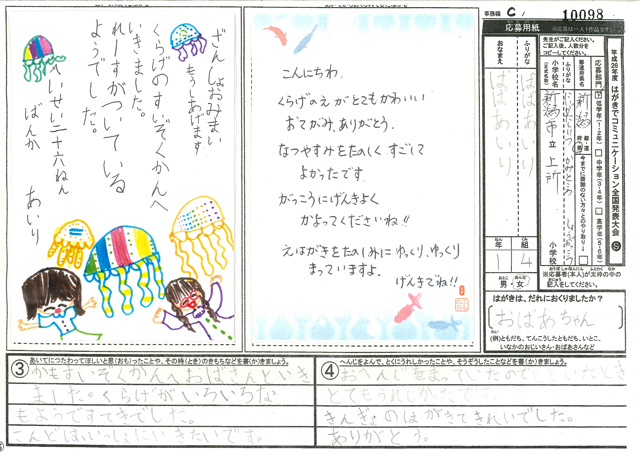 ざんしょおみまい
もうしあげます
くらげのすいぞくかんへ
いきました。
れーすがついている
ようでした。
へいせい二十六ねん
ばんか
あいり
こんにちわ。
くらげのえがとてもかわいい
おてがみ、ありがとう。
なつやすみをたのしくすごして
よかったです。
がっこうにげんきよく
かよってくださいね!!
えはがきをたのしみにゆっくり、ゆっくり
まっていますよ。
げんきでね!!
事務欄 C/ 10098
応募用紙
平成26年度 はがきでコミュニケーション全国発表大会 S
応募部門
低学年(1・2年)
中学年(3・4年)
高学年(5・6年)
都道府県名
新潟
小学校名
新潟市立上所
小学校
ふりがな
おなまえ
ははあいり
年 1
組 4
男・女
※応募者(本人)が太枠の中の
記入をしてください。
はがきは、だれにおくりましたか?
おばあちゃん
(例)ともだち、てんこうしたともだち、いとこ、
いなかのおじいさん・おばあさんなど
③ あいてにつたわってほしいと思(おも)ったことや、その時(とき)のきもちなどを書(か)きましょう。
ました。くらげがいろいろな
もようですてきでした。
こんどはいっしょにいきたいです。
④ へんじをよんで、とくにうれしかったことや、そうぞうしたことなどを書(か)きましょう。
とてもうれしかったです。
きんぎょのはがきてきれいでした。
ありがとう。